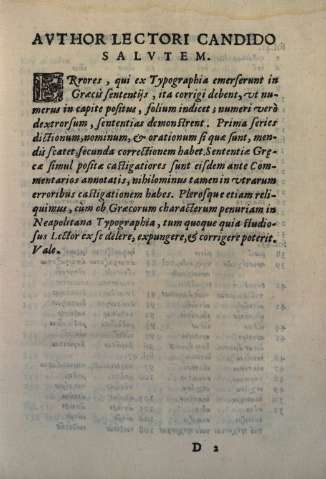 AVTHOR LECTORI CANDIDO
SALVTEM.
ERrores, qui ex Typographia emerserunt in
Græcis sententijs, ita corrigi debent, vt nu-
merus in capite positus, folium indicet; numeri verò
dextrorsum, sententias demonstrent. Prima series
dictionum, nominum, & orationum si quæ sunt, men-
dis scatet, secunda correctionem habet. Sententiæ Gre-
cæ simul positæ castigatiores sunt eisdem ante Com-
mentarios annotatis, nihilominus tamen in vtrarum
erroribus castigationem habes. Plerosque etiam reli-
quimus, cùm ob Græcorum characterum penuriam in
Neapolitana Typographia, tum quoque quia studio-
sus Lector ex se delere, expungere, & corrigere poterit.
Vale.
D 2